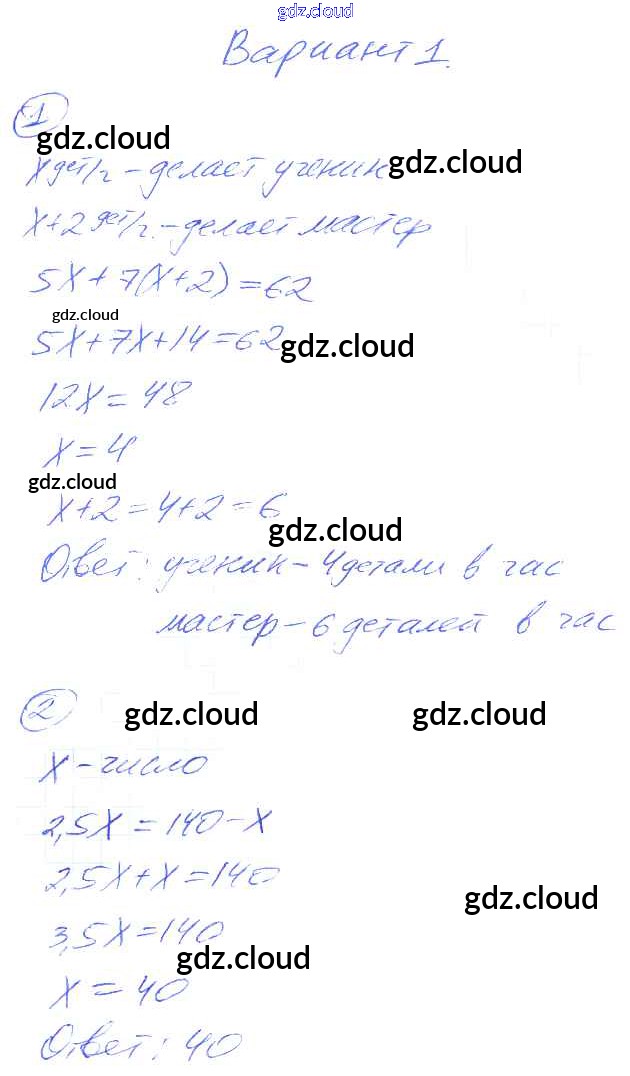 gdz.cloud
Вариант 1.
1
gdz.cloud
x дет/ч - делает ученик
gdz.cloud
x+2 дет/ч. - делает мастер
5x + 7(x+2) = 62
gdz.cloud
5x+7x+14=62
gdz.cloud
12x = 48
x = 4
gdz.cloud
x+2 = 4+2 = 6
gdz.cloud
Ответ: ученик - 4 детали в час
мастер - 6 деталей в час
2
gdz.cloud gdz.cloud
x - число
2,5x = 140 - x
2,5x + x = 140
gdz.cloud
3,5x = 140
gdz.cloud
x = 40
Ответ: 40